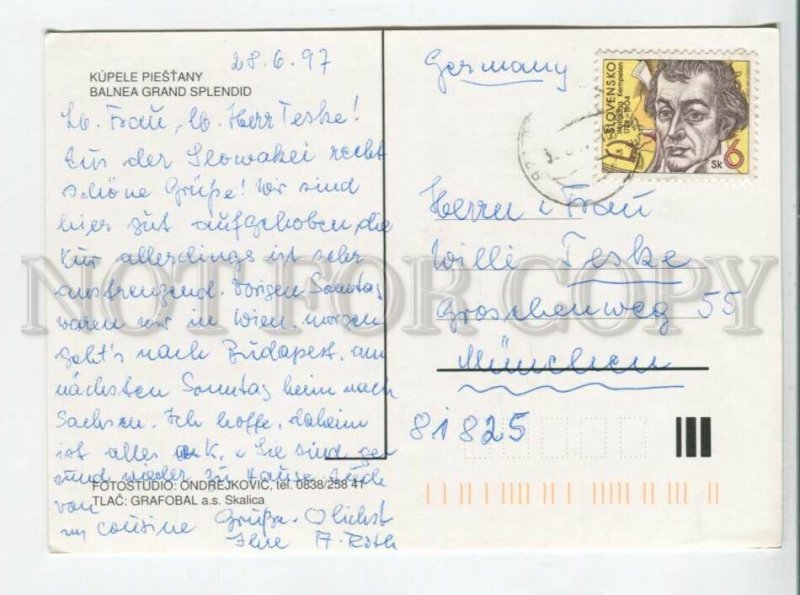 28.6.97
KÚPELE PIEŠŤANY
BALNEA GRAND SPLENDID
Lb. Frau, lb. Herr Teske!
Aus der Slowakei recht
schöne Grüße! Wir sind
hier gut aufgehoben, die
Kur allerdings ist sehr
anstrengend. Vorigen Sonntag
waren wir in Wien, morgen
geht's nach Budapest, am
nächsten Sonntag heim nach
Sachsen. Ich hoffe, daheim
ist alles o.K. u. Sie sind ge-
sund wieder zu Hause. Auch
von
FOTOSTUDIO: ONDREJKOVIČ, tel. 0838/258 41
TLAČ: GRAFOBAL a.s. Skalica
cousine Grüße.
Ihre A. Roth
Germany
SLOVENSKO
Wolfgang Kempelen
1734 - 1804
Sk 6
Herrn u. Frau
Willi Teske
Groschenweg 55
München
81825
NOT FOR COPY